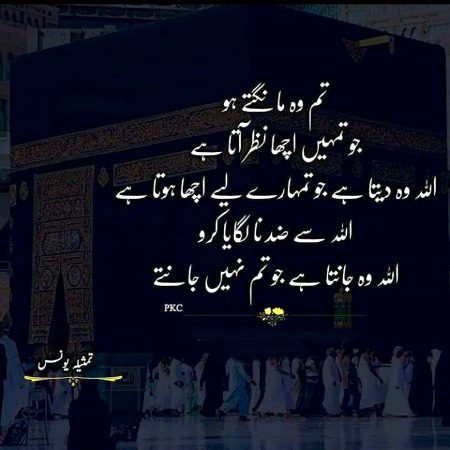 تم وہ مانگتے ہو
جو تمہیں اچھا نظر آتا ہے
اللہ وہ دیتا ہے جو تمہارے لیے اچھا ہوتا ہے
اللہ سے ضد نا لگایا کرو
اللہ وہ جانتا ہے جو تم نہیں جانتے
PKC
تمثیلہ یونس